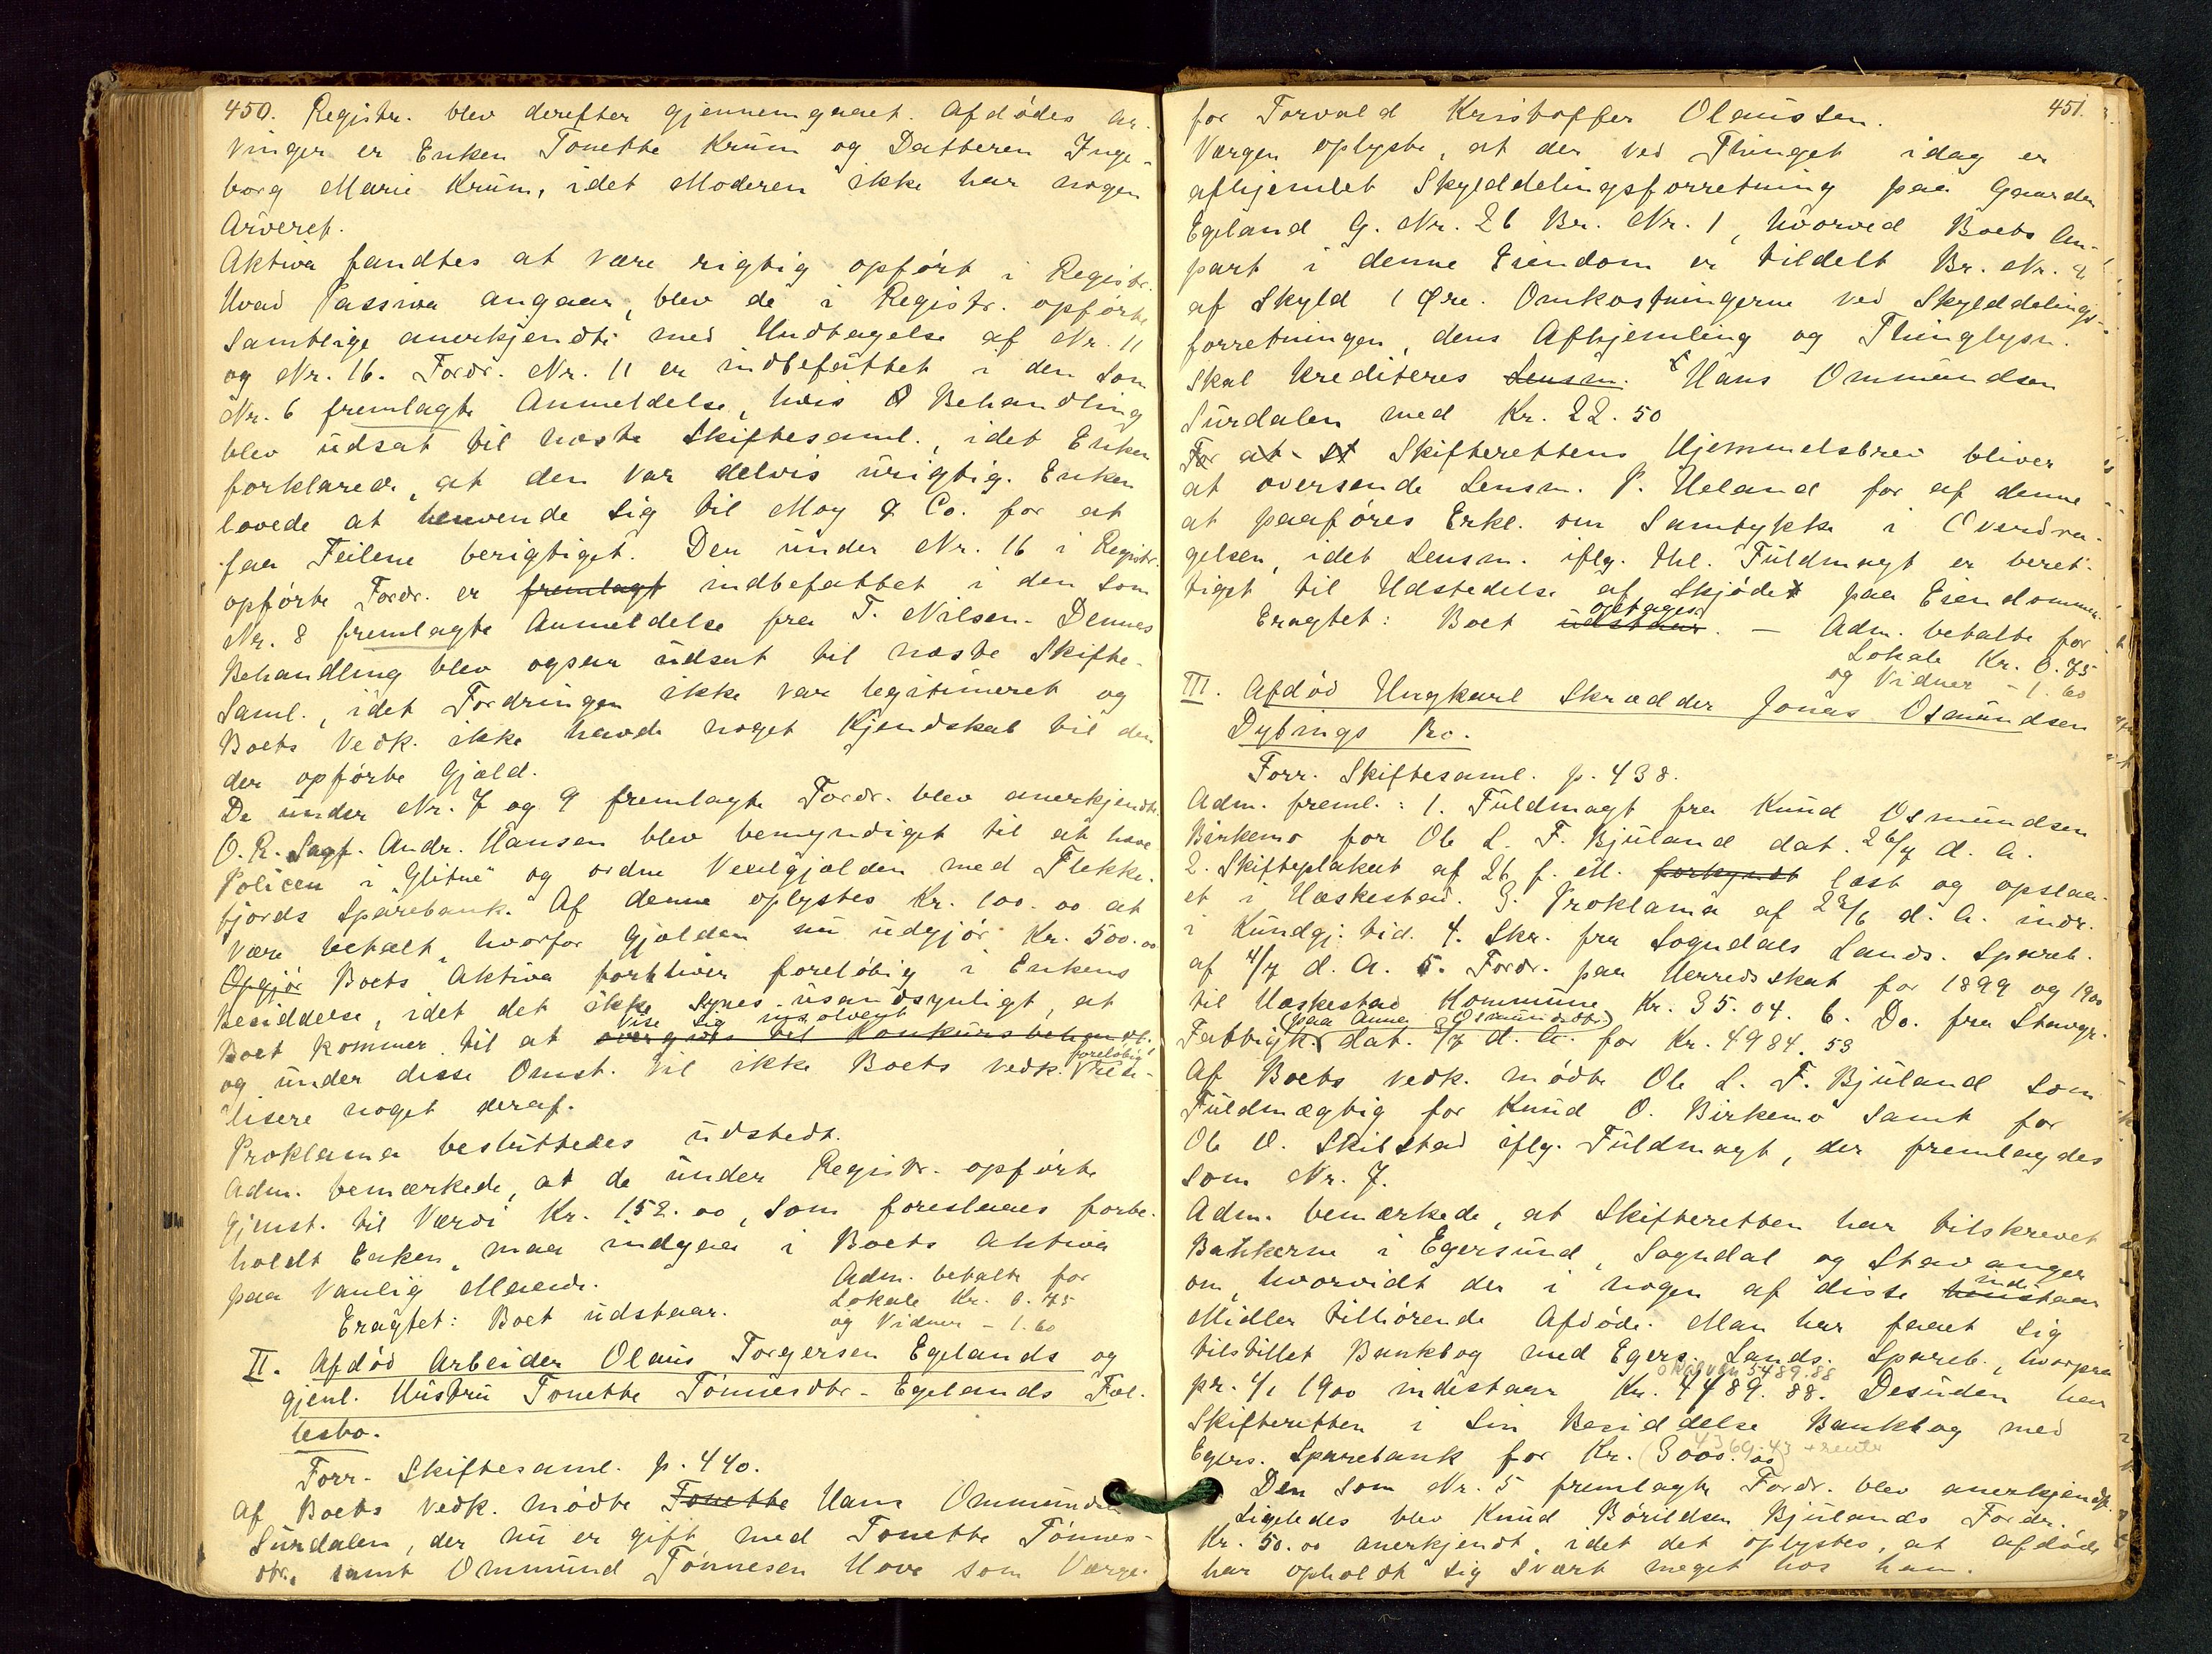 450. Registr. blev derefter gjennemgaaet. Afdødes Ar-
vinger er Enken Tonette Krum og Datteren Inge-
borg Marie Krum, idet Moderen ikke har nogen
Arveret.
Aktiva fandtes at være rigtig opført i Registr.
Hvad Passiva angaar, blev de i Registr. opførte
samtlige anerkjendte med Undtagelse af Nr. 11
og Nr. 16. Fordr. Nr. 11 er indbefattet i den som
Nr. 6 fremlagte Anmeldelse, hvis Behandling
blev udsat til næste Skiftesaml., idet Enken
forklarede, at den var delvis urigtig. Enken
lovede at henvende sig til Moy & Co. for at
faa Feilene berigtiget. Den under Nr. 16 i Registr.
opførte Fordr. er fremlagt indbefattet i den som
Nr. 8 fremlagte Anmeldelse fra T. Nilsen. Dennes
Behandling blev ogsaa udsat til næste Skifte-
saml., idet Fordringen ikke var legitimeret og
Boets Vedk. ikke havde noget Kjendskab til den
der opførte Gjæld.
De under Nr. 7 og 9 fremlagte Fordr. blev anerkjendte.
O.R. Sagf. Andr. Hansen blev bemyndiget til at hæve
Policen i "Glitne" og ordne Vexelgjælden med Flekke-
fjords Sparebank. Af denne oplystes Kr. 100.00 at
være betalt, hvorfor Gjælden nu udgjør Kr. 500.00
Opgjør Boets Aktiva forbliver foreløbig i Enkens
Besiddelse, idet det ikke synes usandsynligt, at
vise sig insolvent
Boet kommer til at overgaa til Konkursbehandl.
og under disse Omst. vil ikke Boets Vedk. foreløbig rea-
lisere noget deraf.
Proklama besluttedes udstedt.
Adm. bemærkede, at de under Registr. opførte
Gjenst. til Værdi Kr. 152.00, som foreslaaes forbe-
holdt Enken, maa indgaa i Boets Aktiva
paa vanlig Maade.
Adm. betalte for
Lokale Kr. 0.75
og Vidner - 1.60
Eragtet: Boet udstaar.
II. Afdød Arbeider Olaus Torgersen Egelands og
gjenl. Hustru Tonette Tønnesdtr. Egelands Fæl-
lesbo.
Forr. Skiftesaml. p. 440.
Af Boets Vedk. mødte Tonette Hans Ommundsen
Surdalen, der nu er gift med Tonette Tønnes-
dtr. samt Ommund Tønnesen Hove som Værge
451.
for Torvald Kristoffer Olaussen.
Værgen oplyste, at der ved Thinget idag er
afhjemlet Skylddelingsforretning paa Gaarden
Egeland G. Nr. 26 Br. Nr. 1, hvorved Boets An-
part i denne Eiendom er tildelt Br. Nr. 4
af Skyld 1 Øre. Omkostningerne ved Skylddelings-
forretningen, dens Afhjemling og Thinglysn.
skal krediteres Lensm. Hans Ommundsen
Surdalen med Kr. 22.50
For at Skifterettens Hjemmelsbrev bliver
at oversende Lensm. P. Ueland for af denne
at paaføres Erkl. om Samtykke i Overdra-
gelsen, idet Lensm. iflg. thl. Fuldmagt er beret-
tiget til Udstedelse af Skjødet paa Eiendommen.
optages
Eragtet: Boet udstaar. — Adm. betalte for
Lokale Kr. 0.75
og Vidner - 1.60
III. Afdød Ungkarl Skrædder Jonas Osmundsen
Dybings Bo.
Forr. Skiftesaml. p. 438.
Adm. freml.: 1. Fuldmagt fra Knud Osmundsen
Birkemo for Ole L. F. Bjuland dat. 26/7 d. A.
2. Skifteplakat af 26 f. M. forkyndt læst og opslaa-
et i Hæskestad. 3. Proklama af 22/6 d. A. indr.
i Kundgj. tid. 4. Skr. fra Sogndals Lands. Spareb.
af 4/7 d. A. 5. Fordr. paa Herredsskat for 1899 og 1900
til Hæskestad Kommune Kr. 35.04. 6. Do. fra Stavgr.
(paa Anna Osmundsdtr.)
Fattigk. dat. 2/7 d. A. for Kr. 4984.53
Af Boets Vedk. mødte Ole L. F. Bjuland som
Fuldmægtig for Knud O. Birkemo samt for
Ole O. Skilstad iflg. Fuldmagt, der fremlagdes
som Nr. 7.
Adm. bemærkede, at Skifteretten har tilskrevet
Bankerne i Egersund, Sogndal og Stavanger
om, hvorvidt der i nogen af disse indestaar
Midler tilhørende Afdøde. Man har faaet sig
tilstillet Bankbog med Egers. Lands. Spareb., hvorpaa
5489.88
pr. 1/1 1900 indestaar Kr. 4489.88. Desuden har
Skifteretten i sin Besiddelse Bankbog med
4369.43 + rente
Egers. Sparebank for Kr. (3000.00)
Den som Nr. 5 fremlagte Fordr. blev anerkjendt.
Ligeledes blev Knud Børildsen Bjulands Fordr.
Kr. 50.00 anerkjendt, idet det oplystes, at Afdøde
har opholdt sig svært meget hos ham.